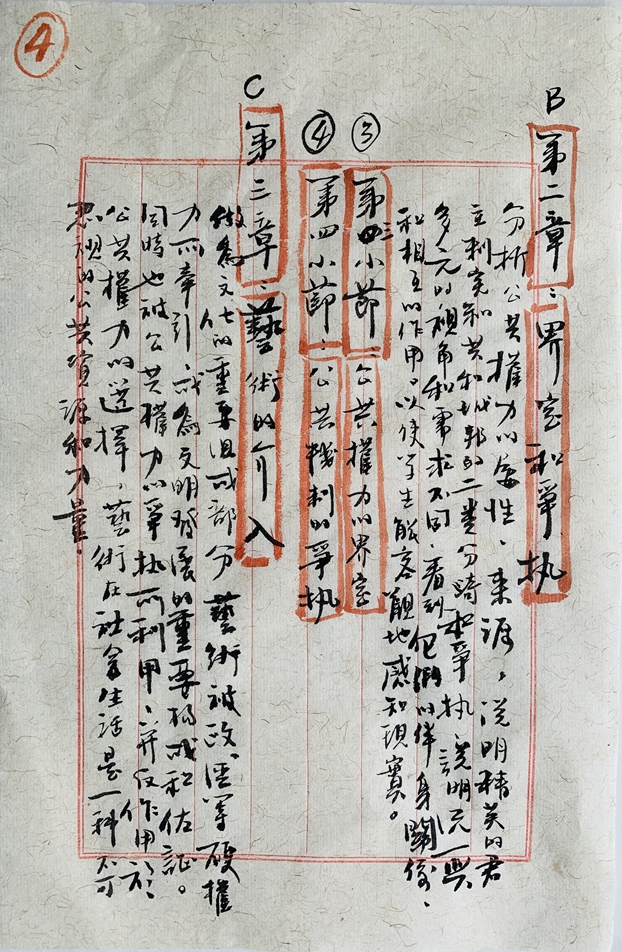 ④
B
第二章：界定和爭执
分析公共權力的屬性、来源，説明精英的君
立制宪和共和城邦的二类分畸和爭执，説明元一與
多元的視角和需求不同，看到它們的伴身關係、
和相互的作用。以使学生能客觀地感知現實。
③
第三小節：公共權力的界定
④
第四小節：公共機制的爭执
C
第三章：藝術的介入
做為文化的重要组成部分 藝術被政治等硬權
力所牽引，成為文明發展的重要構成和佐証。
同時也被公共權力的爭执所利用，并反作用於
公共權力的選擇，藝術在社会生活是一种不可
忽視的公共資源和力量。